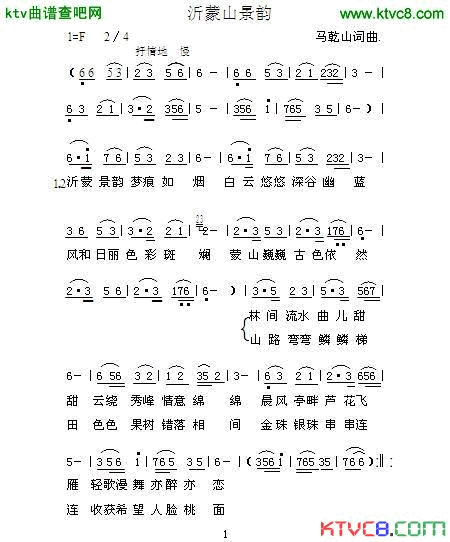 ktv曲谱查吧网
沂蒙山景韵
www.ktvc8.com
1=F 2/4
抒情地 慢
马乾山词曲.
( 6 6 5 3 | 2 3 5 6 | 6 - | 6 6 5 3 | 2 1 | 2 3 2 |
6 3 2 1 | 3 · 2 | 3 5 6 | 3 5 6 i | 7 6 5 3 5 | 6 - )
6 · i 7 6 | 5 6 5 3 | 7 6 | 6 - | 6 · i 7 6 | 5 6 5 3 | 2 3 2 | 3 - |
1.2 沂蒙 景韵 梦痕 如 烟 白云 悠悠 深谷 幽 蓝
3 6 5 3 | 2 · 3 2 1 | 3 5 6 i | 2 - | 2 · 3 5 3 | 6 · i 3 2 | 1 7 6 | 6 - |
风和 日丽 色 彩 斑 斓 蒙山 巍巍 古色 依 然
2 · 3 | 2 · 3 | 1 7 6 | 6 - ) | 3 · 5 | 2 3 5 | 2 · 3 | 5 6 7 |
林 间 流水 曲 儿 甜
山 路 弯弯 鳞 鳞 梯
6 - | 6 5 6 | 3 2 1 | 1 2 | 3 5 2 | 3 - | 6 · 3 | 2 1 | 2 · 3 | 6 5 6 |
甜 云绕 秀峰 情意 绵 绵 晨风 亭畔 芦 花飞
田 色色 果树 错落 相 间 金珠 银珠 串 串连
5 - | 3 5 6 | i · 6 | 3 5 6 | 7 6 | 6 - | ( 3 5 6 i | 7 6 5 3 5 | 7 6 6 ) :||:
雁 轻歌漫 舞 亦醉 亦 恋
连 收获希 望 人脸 桃 面
1
KTVC8.com